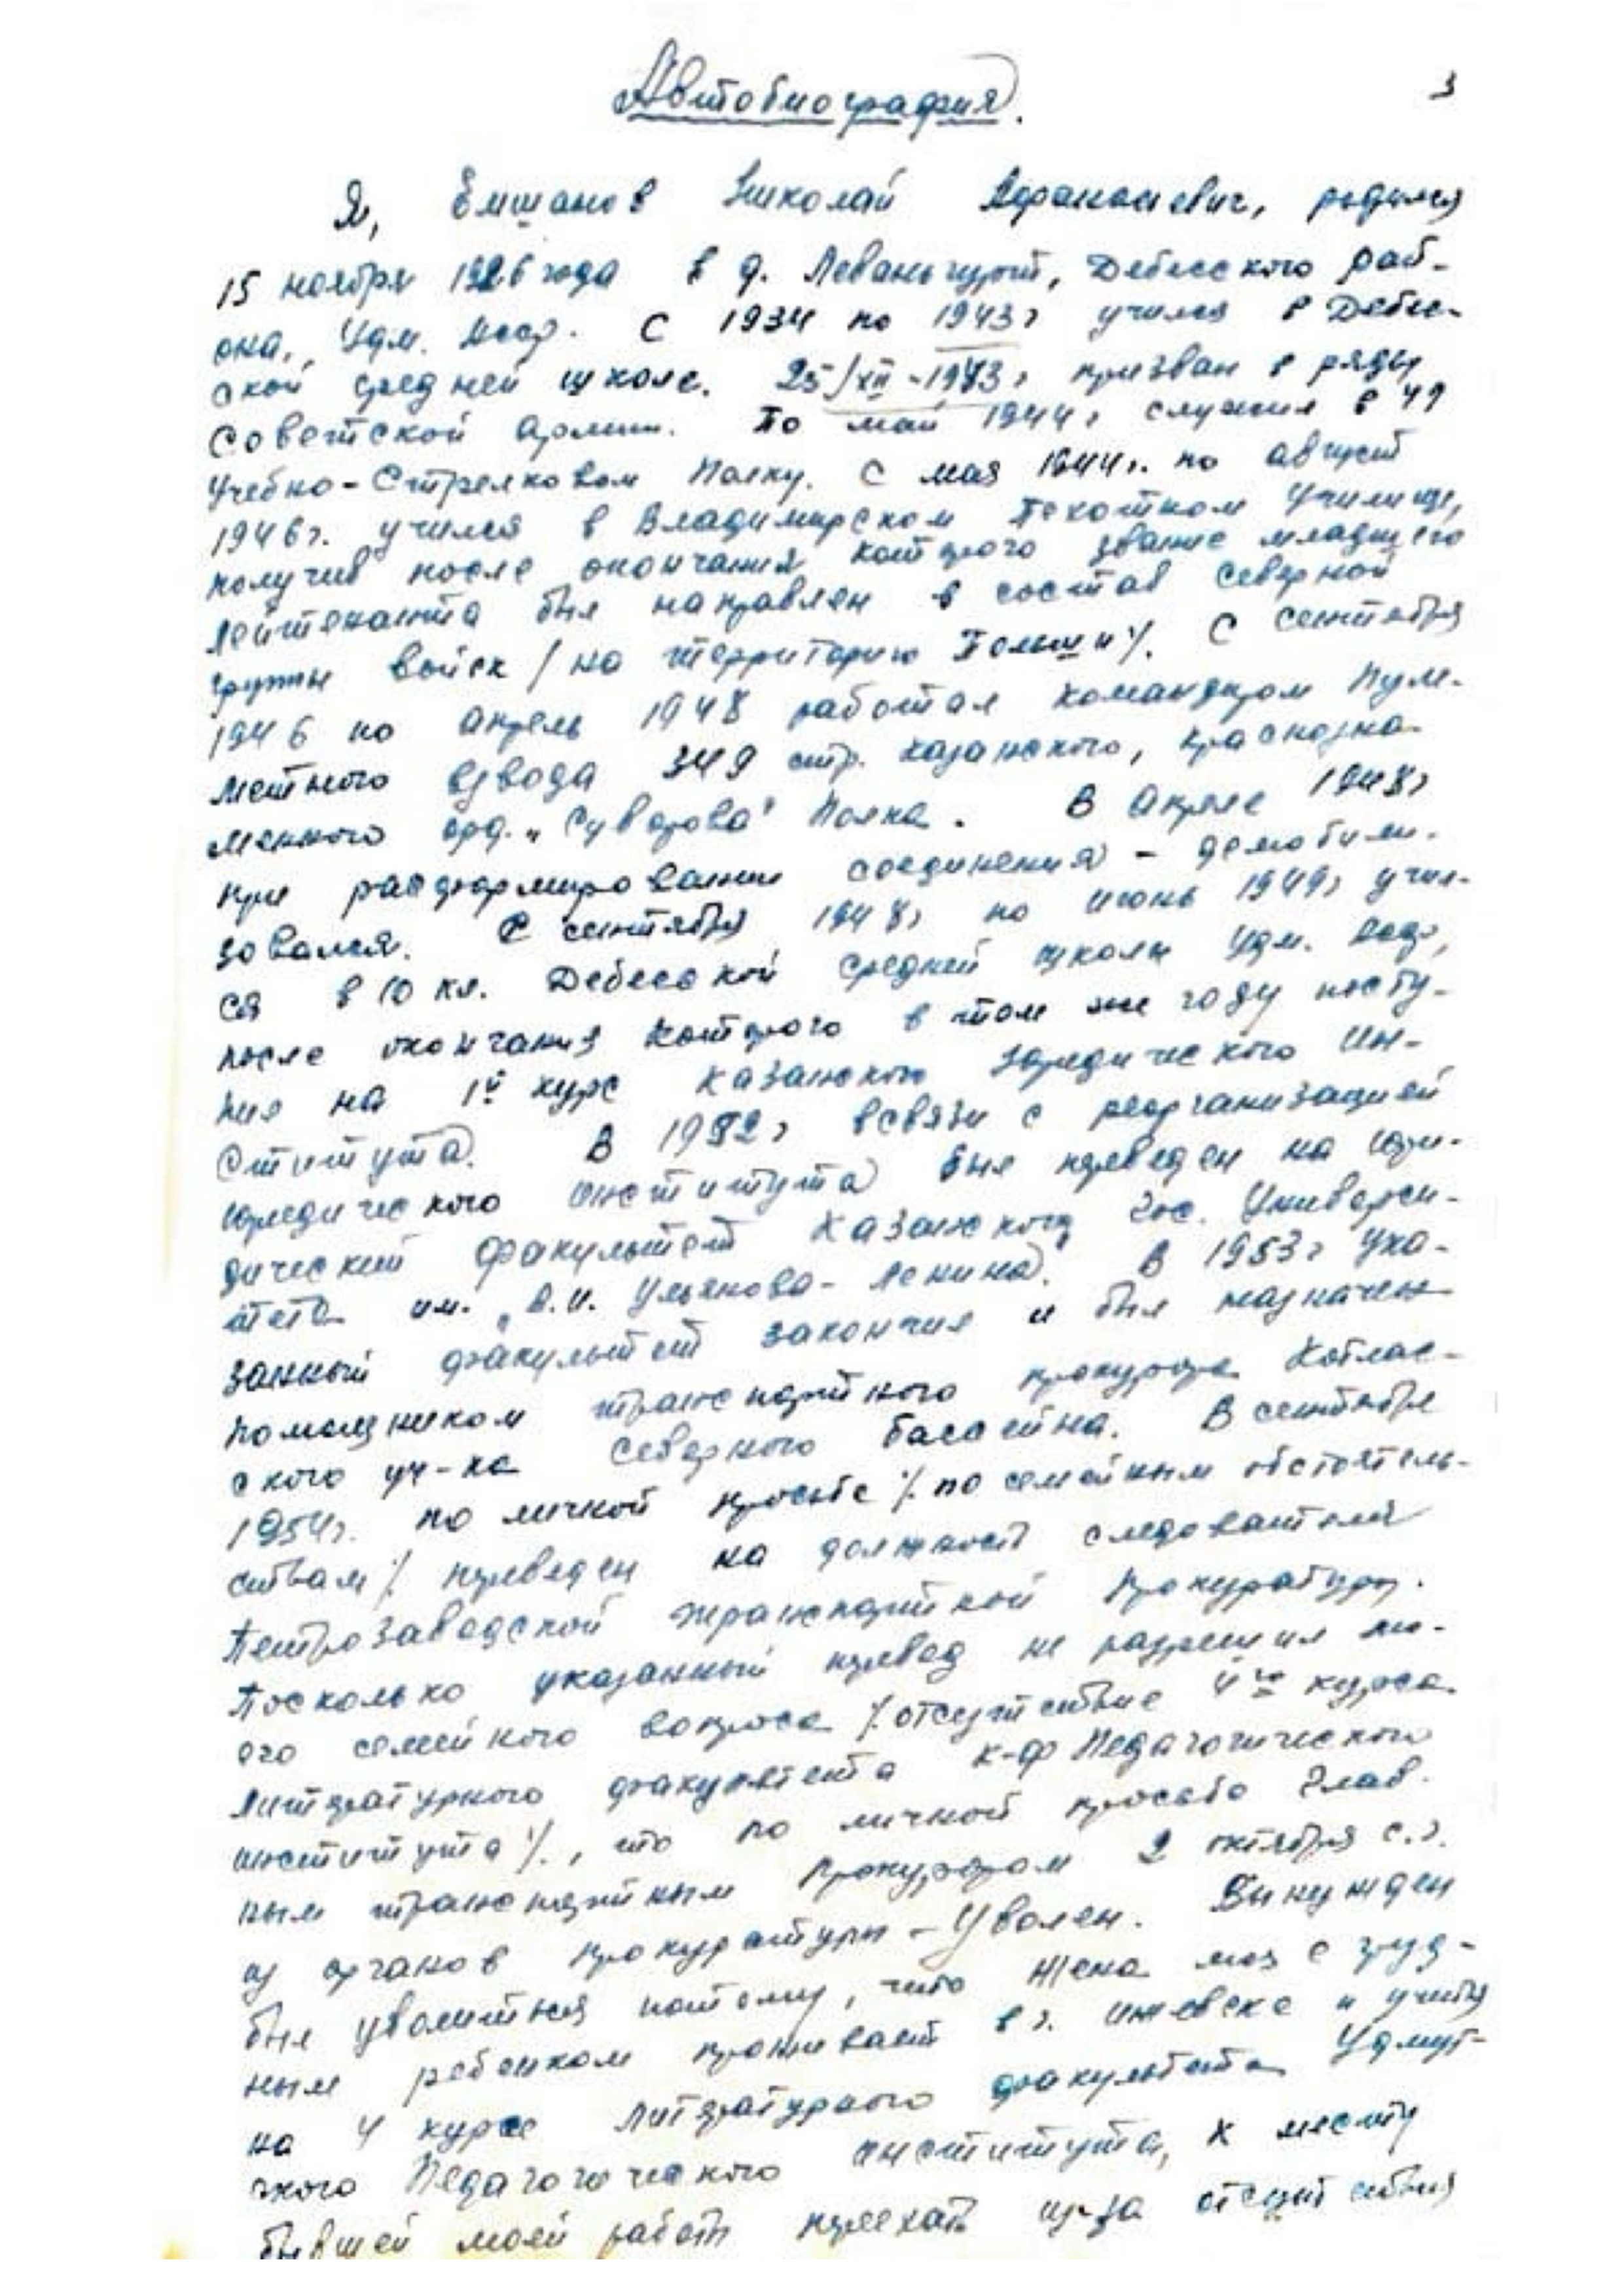 Автобиография.
3
Я, Емшанов Николай Афанасиевич, родился
15 ноября 1926 года в д. Леваньгурт, Дебесского рай-
она, Удм. Асср. С 1934 по 1943г учился в Дебес-
ской средней школе. 25/XII-1943г призван в ряды
Советской Армии. По май 1944г служил в 49
Учебно-Стрелковом Полку. С мая 1944г. по август
1946г. учился в Владимирском Пехотном Училище,
получив после окончания которого звание младшего
лейтенанта был направлен в состав Северной
группы войск /на территорию Польши/. С сентября
1946 по апрель 1948 работал командиром пуле-
метного взвода 349 стр. Казанского, краснозна-
менного орд. „Суворова" Полка. В Апреле 1948г
при расформировании соединения - демобили-
зовался. С сентября 1948г по июнь 1949г учил-
ся в 10 кл. Дебесской средней школы Удм. Асср,
после окончания которого в том же году посту-
пил на 1й курс Казанского Юридического Ин-
ститута. В 1952г всвязи с реорганизацией
юридического института был переведен на юри-
дический факультет Казанского Гос. Универси-
тета им. „В.И. Ульянова-Ленина". В 1953г Ука-
занный факультет закончил и был назначен
помощником транспортного прокурора Котлас-
ского уч-ка Северного бассейна. В сентябре
1954г. по личной просьбе /по семейным обстоятель-
ствам/ переведен на должность следователя
Петрозаводской транспортной Прокуратуры.
Посколько указанный перевод не разрешил мо-
его семейного вопроса /отсутствие 4го курса
литературного факультета К-Ф Педагогического
института/, то по личной просьбе Глав-
ным транспортным Прокурором 2 октября с.г.
из органов прокуратуры - Уволен. Вынужден
был уволиться потому, что жена моя с груд-
ным ребенком проживает в г. Ижевске и учится
на 4 курсе литературного факультета Удмурт-
ского Педагогического института, к месту
бывшей моей работы переехать из-за отсутствия